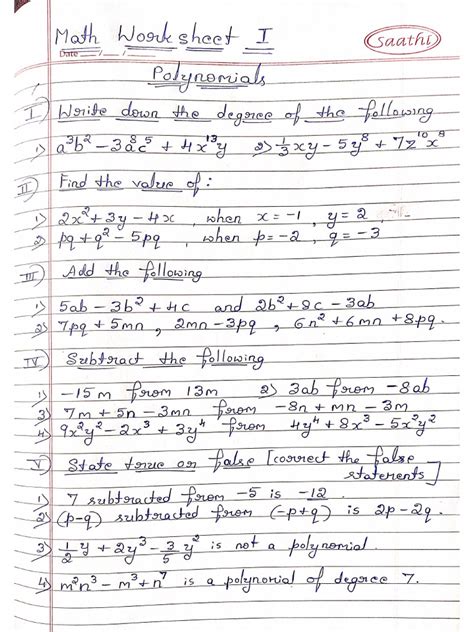 Math Worksheet I
Saathi
Date / /
Polynomials
I) Write down the degree of the following
1) a³b² - 3a⁸c⁵ + 4x¹³y 2) 1/3 xy - 5y⁸ + 7z¹⁰x⁸
II) Find the value of :
1) 2x² + 3y - 4x , when x = -1 , y = 2 ,
2) pq + q² - 5pq , when p = -2 , q = -3
III) Add the following
1) 5ab - 3b² + 4c and 2b² + 8c - 3ab
2) 7pq + 5mn , 2mn - 3pq , 6n² + 6mn + 8pq .
IV) Subtract the following
1) -15m from 13m 2) 3ab from -8ab
3) 7m + 5n - 3mn from -8n + mn - 3m
4) 9x²y² - 2x³ + 3y⁴ from 4y⁴ + 8x³ - 5x²y²
V) State true or false [correct the false
statements]
1) 7 subtracted from -5 is -12 .
2) (p-q) subtracted from (-p+q) is 2p - 2q .
3) 1/2 y + 2y³ - 3/5 y² is not a polynomial .
4) m²n³ - m³ + n⁷ is a polynomial of degree 7 .